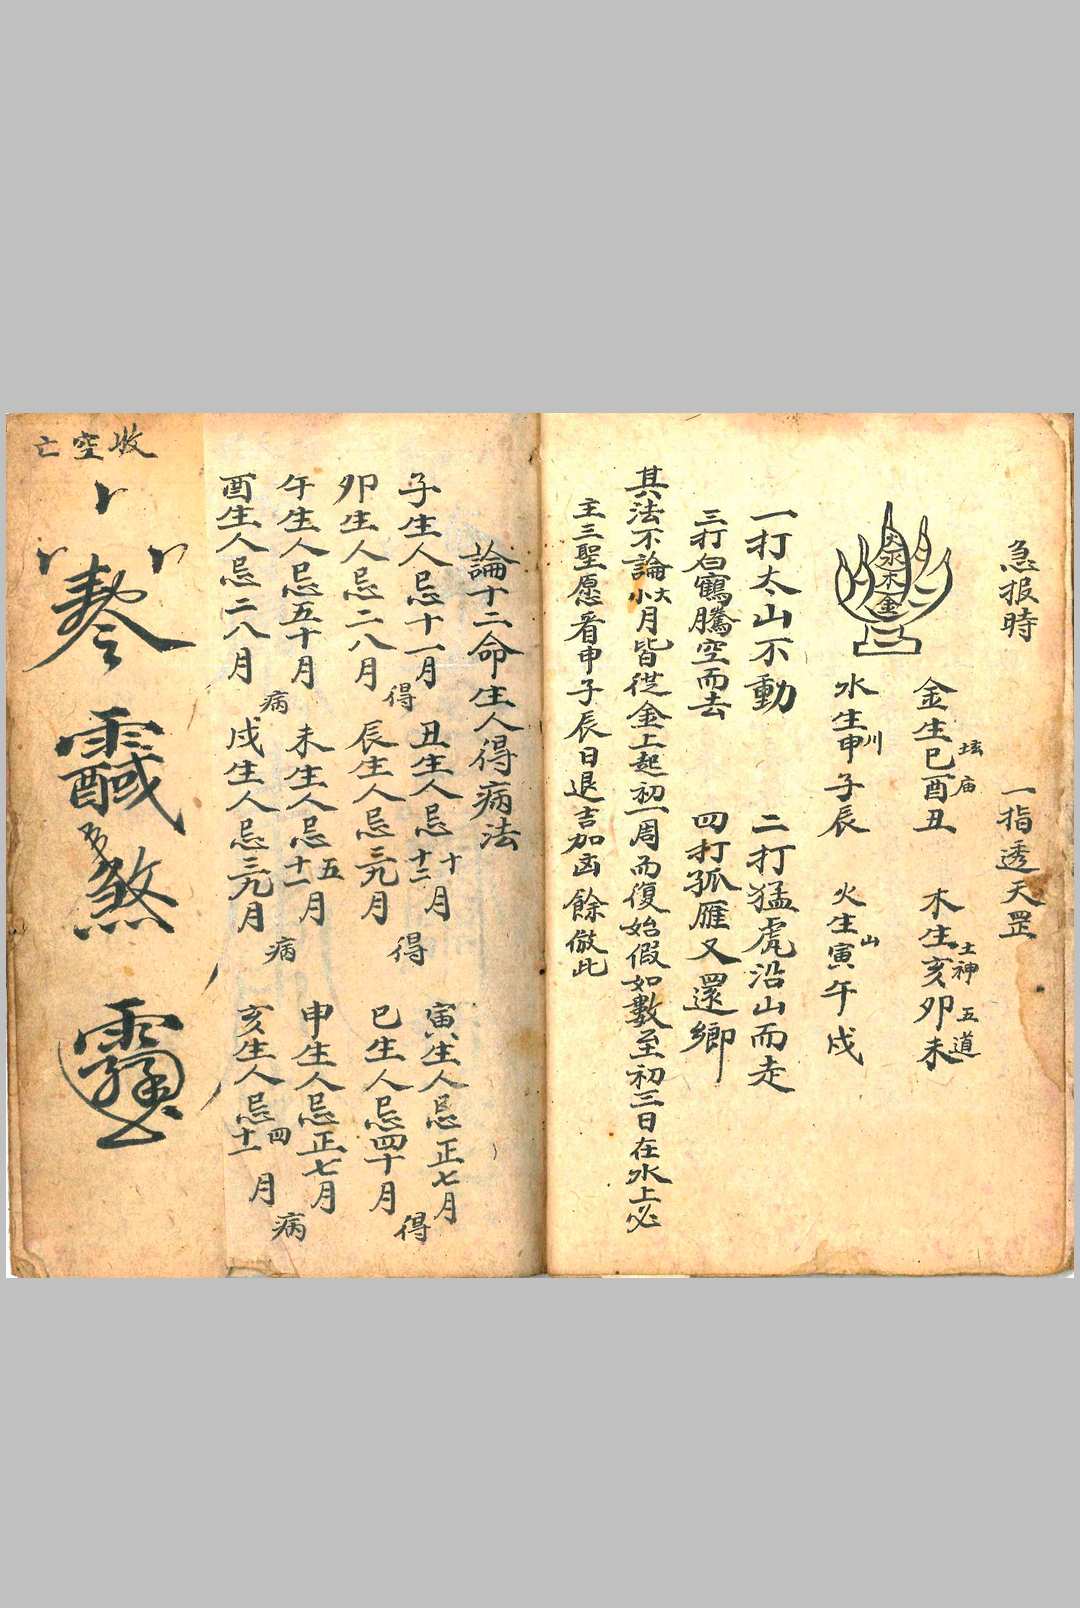 急报時　一指透天罡
金生巳酉丑　坛庙　木生亥卯未　土神　五道
水生申子辰　川　火生寅午戌　山
火水木金
一打太山不動　二打猛虎沿山而走
三打白鶴騰空而去　四打孤雁又還鄉
其法不論大小月皆從金上起初一周而復始假如數至初三日在水上必
主三聖愿看申子辰日退吉加凶餘倣此
論十二命生人得病法
子生人忌十一月　丑生人忌十十二月　寅生人忌正七月
得　得　得
卯生人忌二八月　辰生人忌三九月　巳生人忌四十月
午生人忌五十月　未生人忌五十一月　申生人忌正七月
病　病　病
酉生人忌二八月　戌生人忌三九月　亥生人忌四十一月
收空亡
煞